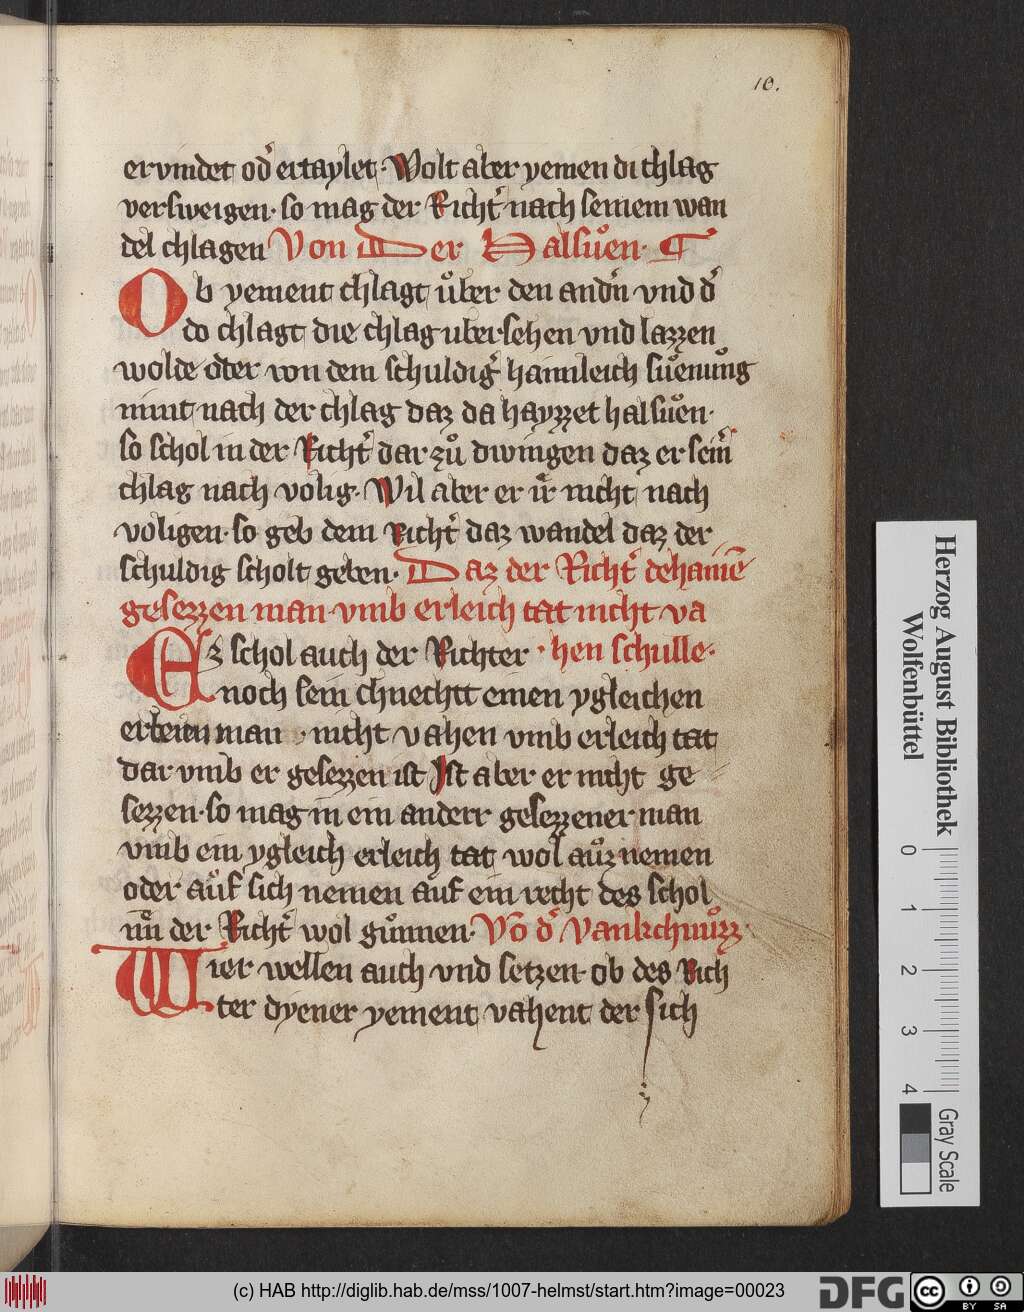 10.
ervindet od͛ ertaylet · Wolt aber yemen di chlag
versweigen · so mag der Richt͛ nach seinem wan
del chlagen Von Der Halsuͦen · C
Ob yement chlagt uͦber den and͛n vnd d͛
do chlagt die chlag uber sehen vnd lazzen
wolde oder von dem schuldig͛ haimleich suͦenuͦng
nimt nach der chlag daz da hayzzet halsuͦen ·
so schol in der Richt͛ dar zuͦ dwingen daz er sein͛
chlag nach volig · Wil aber er ir͛ nicht nach
voligen · so geb dem Richt͛ daz wandel daz der
schuldig scholt geben · Daz der Richt͛ dehainē
gesezzen man vmb erleich tat nicht va
Ez schol auch der Richter · hen schulle ·
noch sein chnechtt einen ygleichen
erbeirn man · nicht vahen vmb erleich tat
dar vmb er gesezzen ist Ist aber er nicht ge
sezzen · so mag in ein anderr gesezzener man
vmb ein ygleich erleich tat wol auͦz nemen
oder auͦf sich nemen auf ein recht des schol
im͛ der Richt͛ wol guͦnnen · Vō d͛ Vankchnuͦzz ·
Wier wellen auch vnd setzen · ob des Rich
ter dyener yement vahent der sich
Herzog August Bibliothek
Wolfenbüttel
0 1 2 3 4
Gray Scale
(c) HAB http://diglib.hab.de/mss/1007-helmst/start.htm?image=00023
DFG
cc BY SA